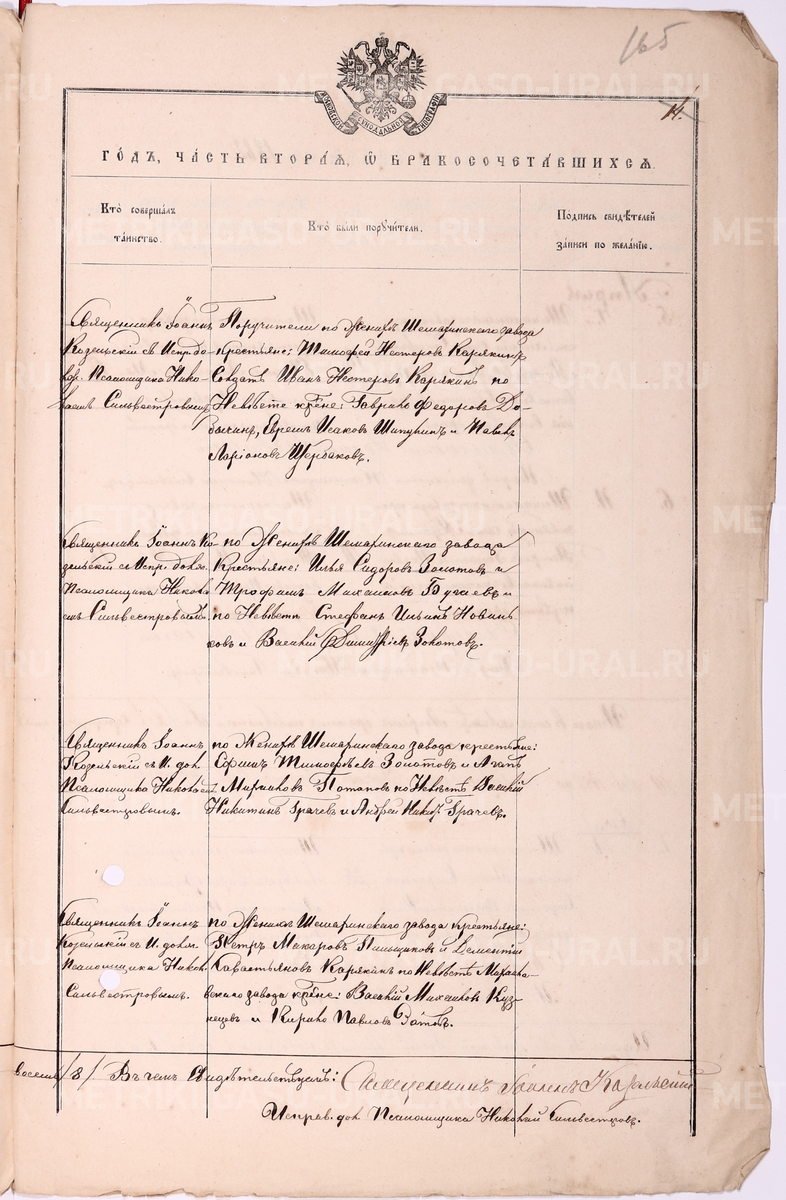 165
14.
МОСКОВСКОЙ СѴНОДАЛЬНОЙ ТИПОГРАФІИ
ГО́ДЪ, ЧА́СТЬ ВТОРА́Я, Ѽ БРАКОСОЧЕТА́ВШИХСЯ.
Кто̀ соверша́лъ та́инство.
Кто̀ бы́ли порꙋчи́тели.
По́дпись свидѣ́телей за́писи по жела́нїю.
Священникъ Іоаннъ
Козельскій съ Испр. до
лж. Псаломщика Нико-
лаемъ Сильвестровымъ
Поручители по Женихѣ Шемаринскаго завода
крестьяне: Тимофей Нестеровъ Карякинъ
Солдатъ Иванъ Нестеровъ Карякинъ по
Невѣстѣ крѣне: Гаврило Федоровъ До-
бычинъ, Ефремъ Исаковъ Шипулинъ и Павелъ
Ларіоновъ Щербаковъ.
Священникъ Іоаннъ Ко-
зельскій съ Испр. долж.
Псаломщика Никола
емъ Сильвестровымъ
по Женихѣ Шемаринскаго завода
Крестьяне: Илья Сидоровъ Золотовъ и
Трофимъ Михаиловъ Бугаевъ и
по Невѣстѣ Стефанъ Ильинъ Новинь-
ковъ и Василій Золотовъ.
Священникъ Іоаннъ
Козельскій съ И. дол.
Псаломщика Николаем
Сильвестровымъ.
по Женихѣ Шемаринскаго завода крестьяне:
Ефимъ Тимофеевъ Золотовъ и
Потаповъ по Невѣстѣ Василій
Никитинъ Грачевъ и Андрей Никит. Грачевъ.
Священникъ Іоаннъ
Козельскій съ И. долж.
Псаломщика Никол.
Сильвестровымъ.
по Женихѣ Шемаринскаго завода крестьяне:
Петръ Макаровъ Пильщиковъ и Дементій
Савастьяновъ Карякинъ по Невѣстѣ Михайло-
вскаго завода крѣне: Василій Михаиловъ Куз-
нецовъ и Кирило Павловъ
восемь /8/ Въ чемъ Свидѣтельствуемъ: Священникъ Іоаннъ Козельскій
Исправ. дол. Псаломщика Николай Сильвестровъ.